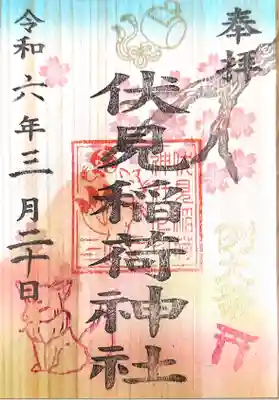 奉拝
伏見稲荷神社
令和六年三月二十日